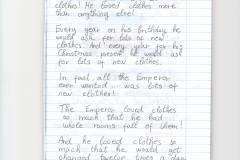 clothes! He loved clothes more
than anything else!
Every year on his birthday he
would ask for lots of new
clothes. And every year for his
Christmas present he would ask
for lots of new clothes.
In fact, all the Emperor
ever wanted was lots of
new clothes!
The Emperor loved clothes
so much that he had
whole rooms full of them!
And he loved clothes so
much that he would get
changed twelve times a day